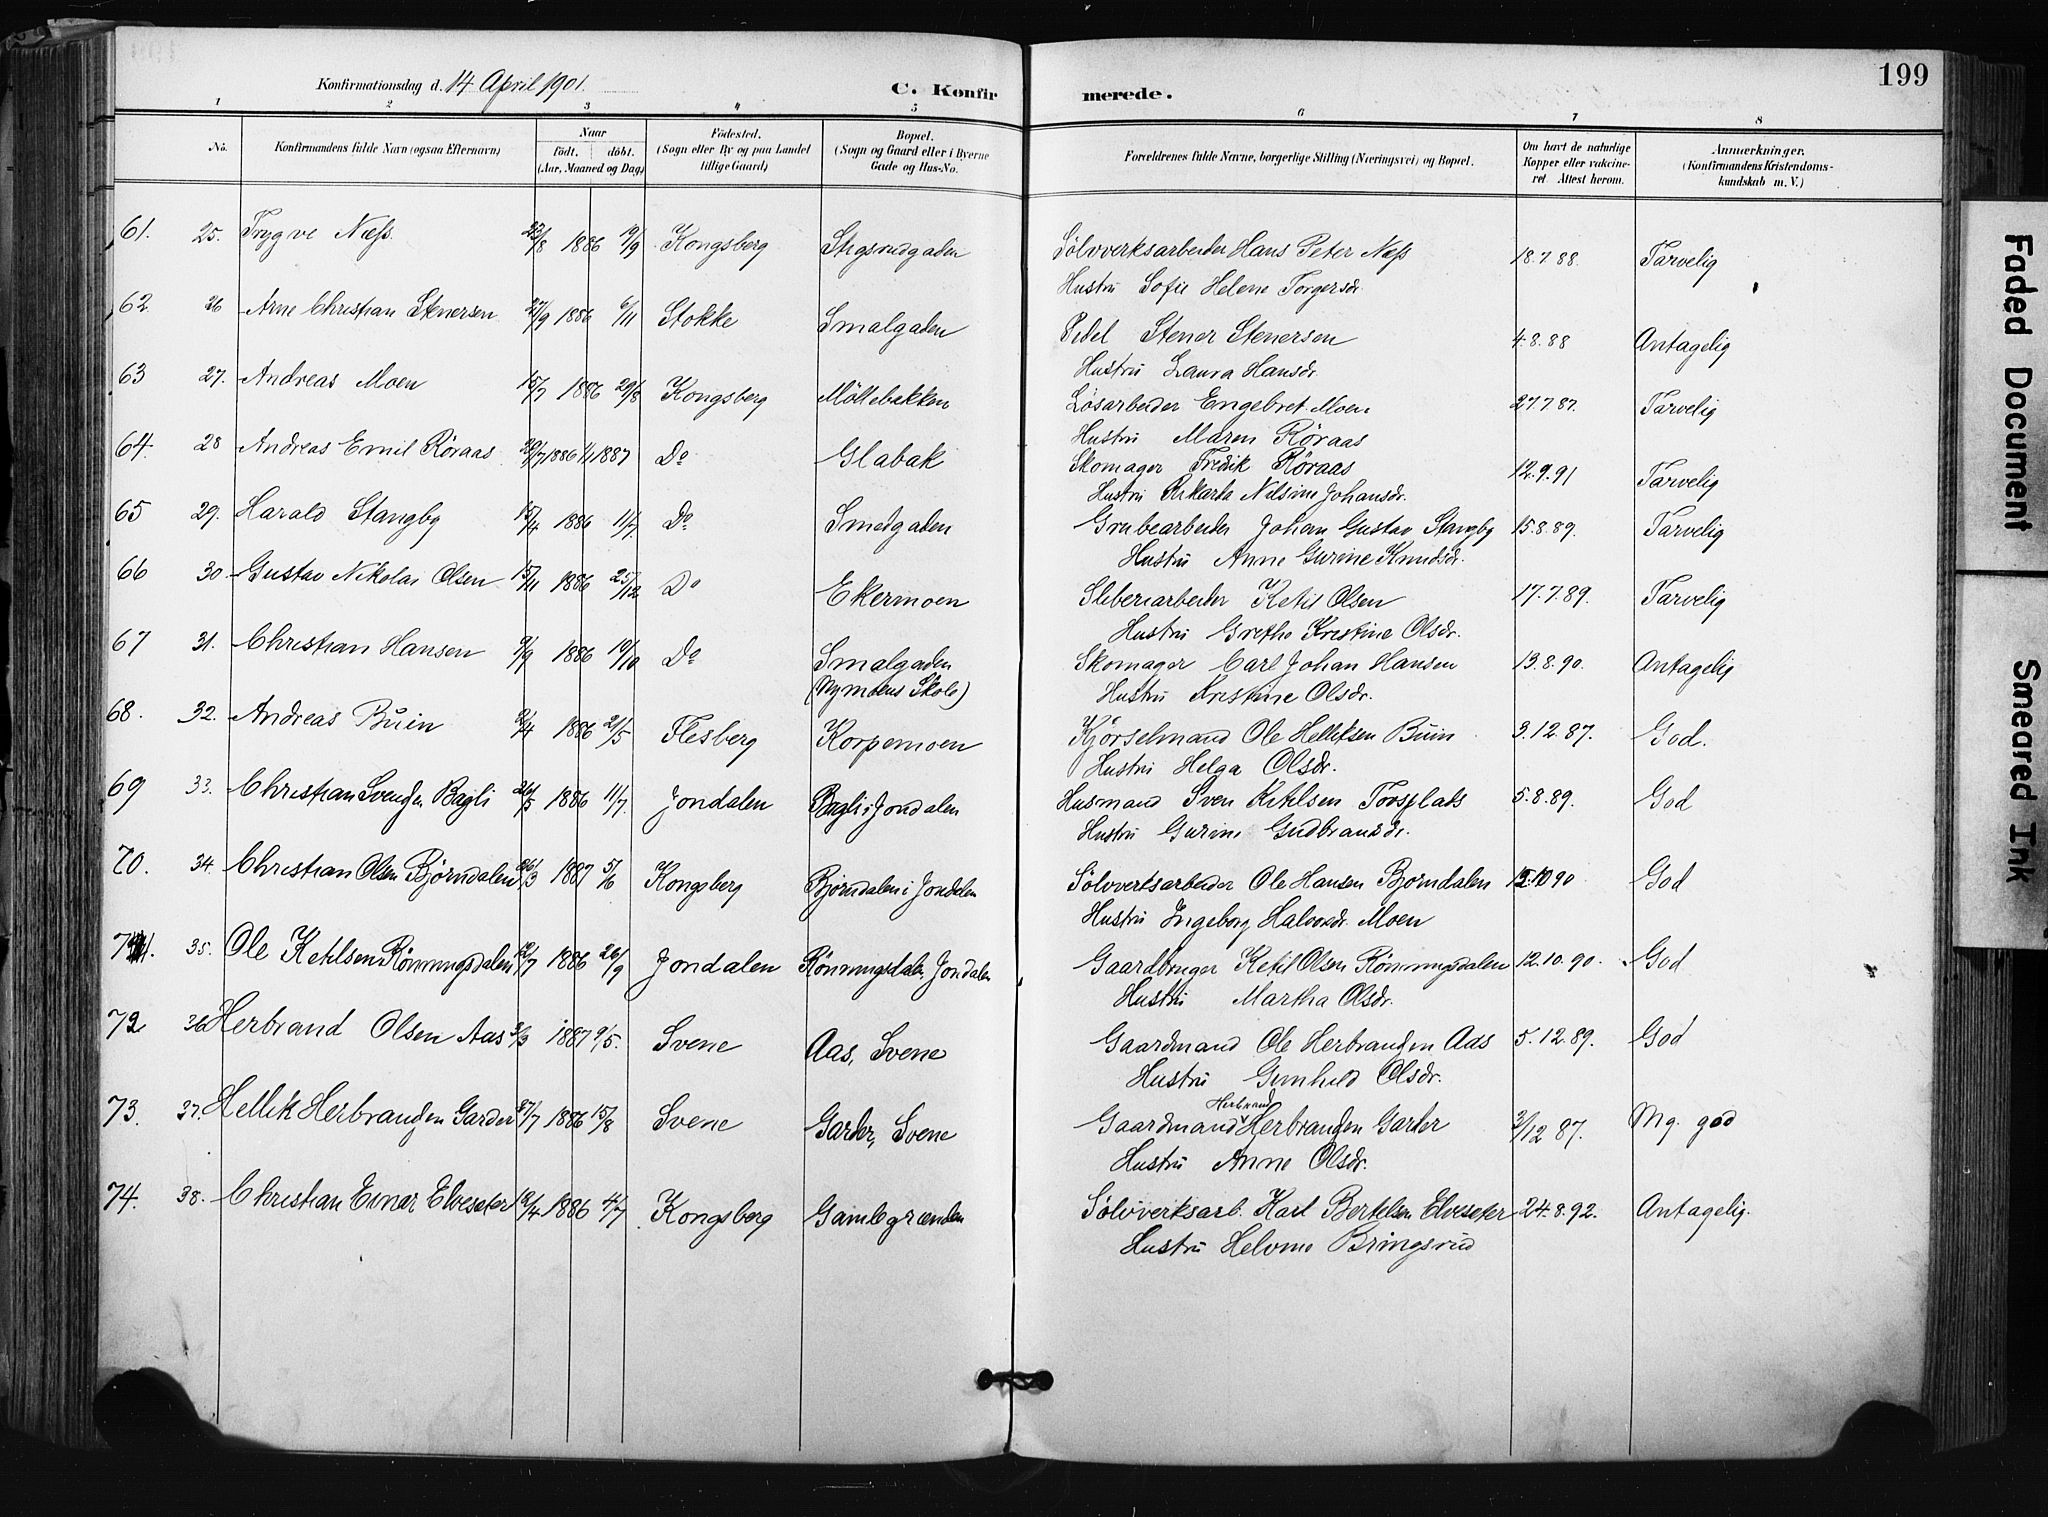 199
Konfirmationsdag d. 14 April 1901.
C. Konfirmerede.
1 2 3 4 5 6 7 8
No. Konfirmandens fulde Navn (ogsaa Efternavn) Naar födt. döbt. (Aar, Maaned og Dag) Födested. (Sogn eller By og paa Landet tillige Gaard) Bopæl. (Sogn og Gaard eller i Byerne Gade og Hus-No. Forældrenes fulde Navne, borgerlige Stilling (Næringsvei) og Bopæl. Om havt de naturlige Kopper eller vakcineret. Attest herom. Anmærkninger. (Konfirmandens Kristendomskundskab m. V.)
61. 25. Trygve Næss 23/8 1886 19/9 Kongsberg Stigsrudgaden Sølvverksarbeider Hans Peter Næss 18.7.88. Tarvelig
Hustru Sofie Helene Torgersdr.
62 26 Arne Christian Stenersen 27/9 1886 6/11 Stokke Smalgaden Pedel Stener Stenersen 4.8.88 Antagelig
Hustru Laura Hansdr.
63 27. Andreas Moen 15/7 1886 29/8 Kongsberg Möllebakken Løsarbeider Engebret Moen 27.7.87. Tarvelig
Hustru Maren Røraas
64. 28 Andreas Emil Røraas 1886 1/1 1887 Do Glabak Skomager Fredik Röraas 12.9.91 Tarvelig
Hustru Rikarta Nilsine Johansdr.
65 29. Harald Stangby 15/4 1886 11/7. Do Smedgaden Grubearbeider Johan Gustav Stangby 15.8.89. Tarvelig
Hustru Anne Gurine Knudsdr.
66 30. Gustav Nikolai Olsen 15/11 1886 25/12 Do Ekermoen Sliberiarbeider Ketil Olsen 17.7.89. Tarvelig
Hustru Grethe Kristine Olsdr.
67 31. Christian Hansen 9/9 1886 19/10 Do Smalgaden (Nymoens Skole) Skomager Carl Johan Hansen 13.8.90. Antagelig
Hustru Kristine Olsdr.
68. 32. Andreas Buin 2/4 1886 21/5 Flesberg Korpemoen Kjørselmand Ole Helliksen Buin 3.12.87. God.
Hustru Helga Olsdr.
69 33. Christian Svendsen Bagli 26/5 1886 11/7. Jondalen Bagli i Jondalen Husmand Sven Ketilsen Torsplads 5.8.89. God
Hustru Gurine Gudbransdr.
70. 34. Christian Olsen Bjørndalen 26/3 1887 5/6 Kongsberg Bjørndalen i Jondalen Sølvverksarbeider Ole Hansen Bjørndalen 12.10 90 God
Hustru Ingeborg Halvorsdr. Moen
71. 35. Ole Ketilsen Rønningsdalen 12/7 1886 26/9 Jondalen Rönningsdalen, Jondalen Gaardbruger Ketil Olsen Rønningsdalen 12.10.90. God
Hustru Martha Olsdr.
72 36 Herbrand Olsen Aas 3/3 1887 9/5. Svene Aas, Svene Gaardmand Ole Herbrandsen Aas 5.12.89. God
Hustru Gunhild Olsdr.
73. 37. Hellik Herbrandsen Garder 27/7 1886 15/8 Svene Garder, Svene Gaardmand Herbrand Herbrandsen Garder 3/12 87. Mg. god
Hustru Anne Olsdr.
74. 38. Christian Einar Elveseter 18/4 1886 4/7 Kongsberg Gamlegrænden Sølvverksarb. Karl Bertelsen Elveseter 24.8.92. Antagelig.
Hustru Helvine Bringsrud
Faded Document
Smeared Ink